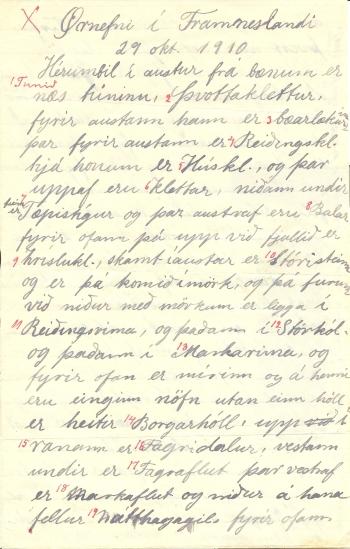 X Örnefni í Framneslandi
29 okt. 1910
Hérumbil í austur frá bænum er
1 Túnið
næs túninu, 2 Þvottaklettur,
fyrir austann hann er 3 bæarlækur
þar fyrir austann er 4 Reiðingskl.
hjá honum er 5 Húskl., og þar
uppaf eru 6 klettar, niðann undir
er 7 Tæpistígur og þar austraf erru 8 Balar
fyrir ofann þá upp við fjallið er
9 kvíslukl., skamt íaustar er 10 Stóristeinn
og er þá komið ímörk, og þá furum
við niður með mörkum er leggja í
11 Reiðingsrima, og þaðann í 12 Stórhól
og þaðann í 13 Markarima, og
fyrir ofan er mírinn og á henni
eru einginn nöfn utan einn hóll
er heitir 14 Borgarhóll, upp við í
15 ranann er 16 Fagridalur, vestann
undir er 17 Fagraflut þar vestraf
er 18 Markaflut og niður á hana
fellur 19 Nátthagagil. fyrir ofann